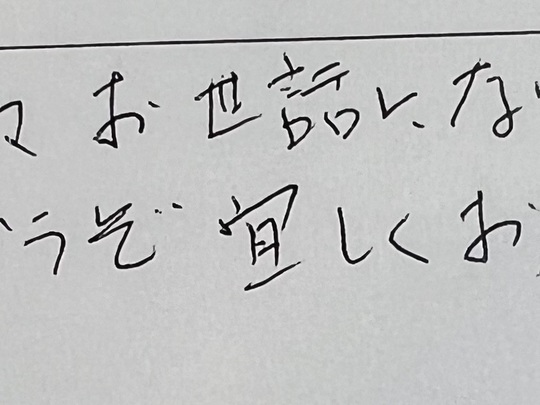 々お世話になり
どうぞ宜しくお